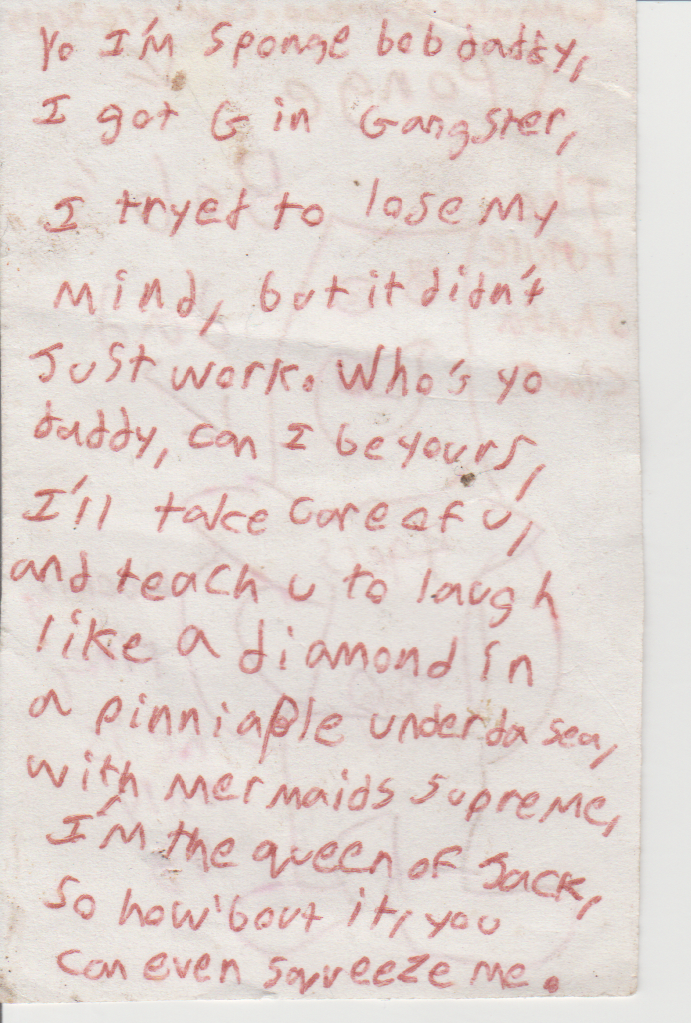 Yo I'm Sponge bob daddy,
I got G in Gangster,
I tryed to lose My
Mind, but it didn't
Just work. Who's yo
daddy, can I be yours,
I'll take care of u,
and teach u to laugh
like a diamond in
a pinniaple under da sea,
with Mermaids supreme,
I'm the queen of Jack,
So how 'bout it, you
Can even squeeze me.